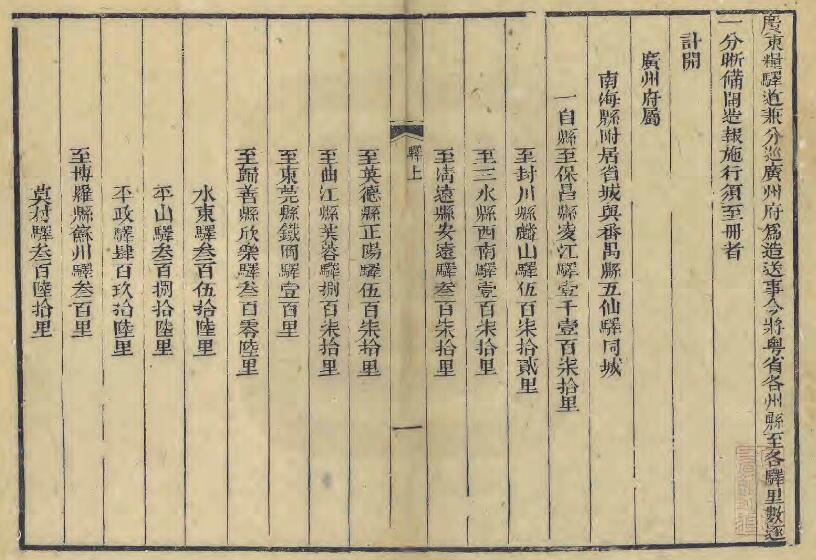 廣東糧驛道兼分巡廣州府為造送事今將粤省各州縣至各驛里數逐
一分晰備開造報施行須至冊者
計開
廣州府屬
南海縣附居省城與番禺縣五仙驛同城
一自縣至保昌縣凌江驛壹千壹百柒拾里
至封川縣麟山驛伍百柒拾貳里
至三水縣西南驛壹百柒拾里
至清遠縣安遠驛叁百柒拾里
驛上
一
至英德縣正陽驛伍百柒拾里
至曲江縣芙蓉驛捌百柒拾里
至東莞縣鐵岡驛壹百里
至歸善縣欣樂驛叁百零陸里
水東驛叁百伍拾陸里
平山驛叁百捌拾陸里
平政驛肆百玖拾陸里
至博羅縣蘇州驛叁百里
莫村驛叁百陸拾里